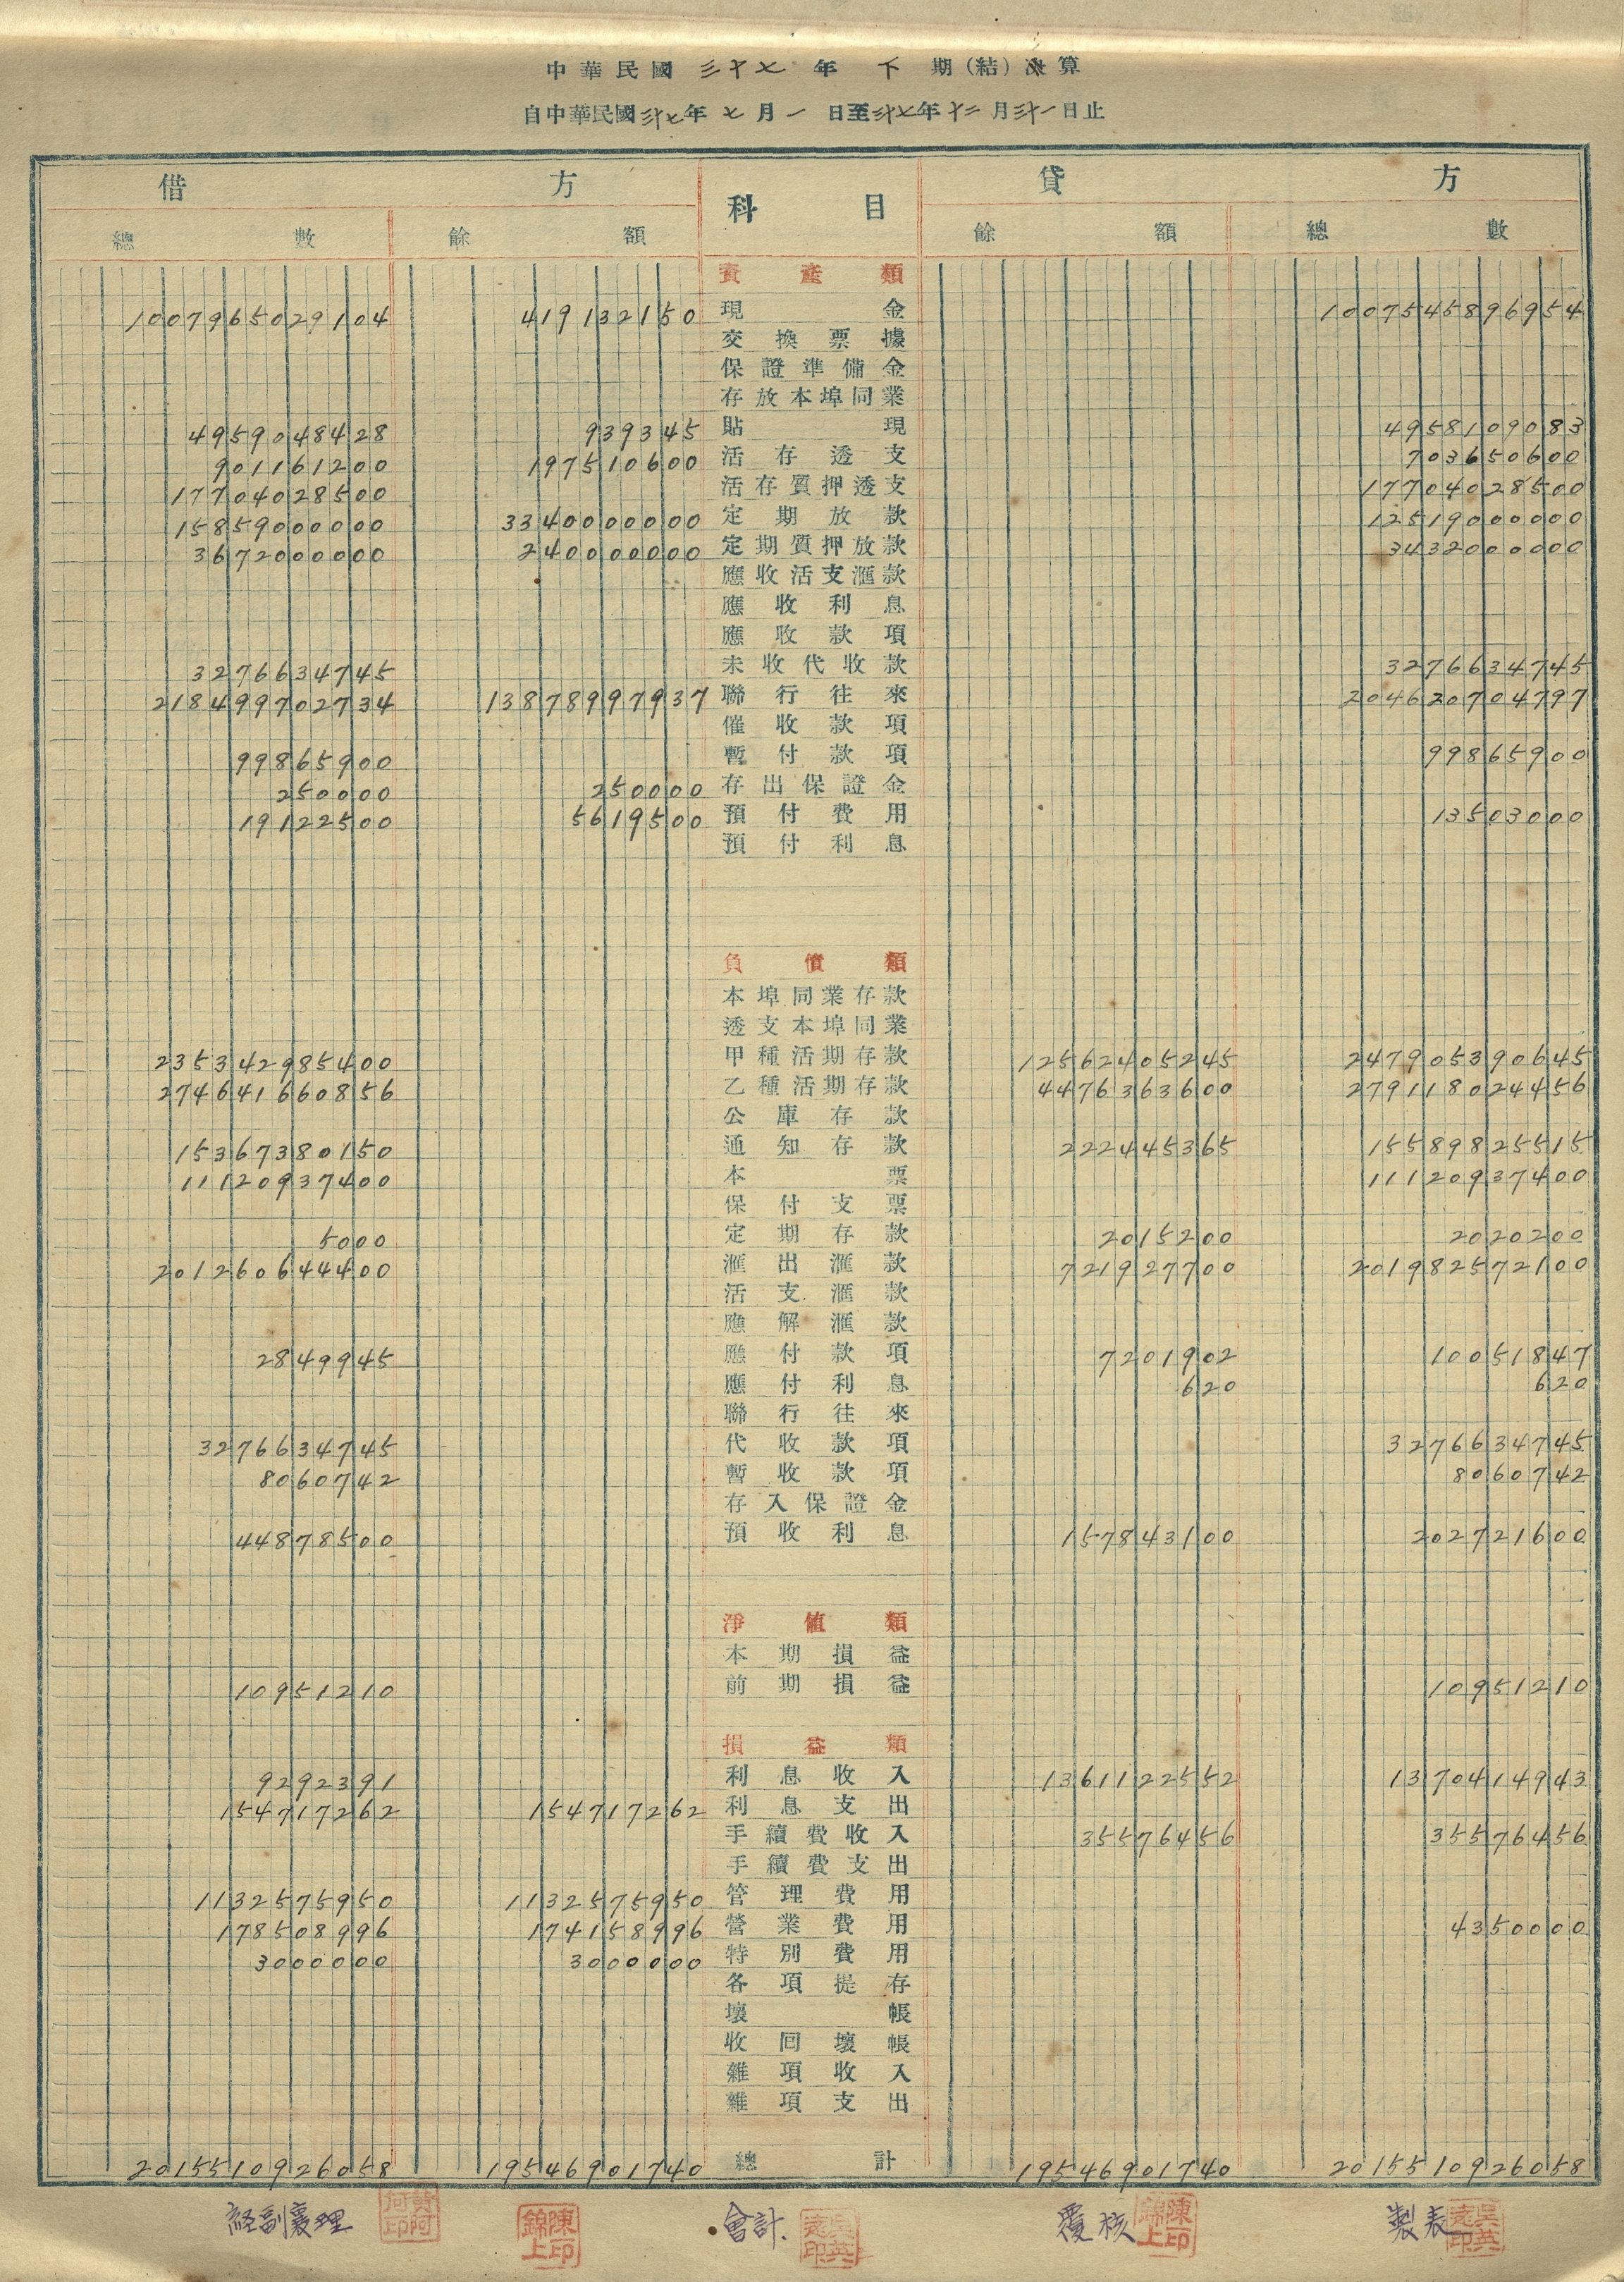 中華民國三十七年下期(結)決算
自中華民國三十七年七月一日至三十七年十二月三十一日止
借方 科目 貸方
總數 餘額 餘額 總數
資產類
1007965029104 419132150 現金 1007545896954
交換票據
保證準備金
存放本埠同業
4959048428 939345 貼現 4958109083
901161200 197510600 活存透支 703650600
17704028500 活存質押透支 17704028500
15859000000 3340000000 定期放款 12519000000
3672000000 240000000 定期質押放款 3432000000
應收活支滙款
應收利息
應收款項
3276634745 未收代收款 3276634745
218499702734 13878997937 聯行往來 204620704797
催收款項
99865900 暫付款項 99865900
250000 250000 存出保證金
19122500 5619500 預付費用 13503000
預付利息
負債類
本埠同業存款
透支本埠同業
235342985400 甲種活期存款 12562405245 247905390645
274641660856 乙種活期存款 4476363600 279118024456
公庫存款
15367380150 通知存款 222445365 15589825515
11120937400 本票 11120937400
保付支票
5000 定期存款 2015200 2020200
201260644400 滙出滙款 721927700 201982572100
活支滙款
應解滙款
2849945 應付款項 7201902 10051847
應付利息 620 620
聯行往來
3276634745 代收款項 3276634745
8060742 暫收款項 8060742
存入保證金
44878500 預收利息 157843100 202721600
淨值類
本期損益
10951210 前期損益 10951210
損益類
9292391 利息收入 1361122552 1370414943
154717262 154717262 利息支出
手續費收入 35576456 35576456
手續費支出
1132575950 1132575950 管理費用
178508996 174158996 營業費用 4350000
3000000 3000000 特別費用
各項提存
壞帳
收回壞帳
雜項收入
雜項支出
2015510926058 19546901740 總計 19546901740 2015510926058
経副襄理 陳錦上印 會計 吳英遠印 覆核 陳錦上印 製表 吳英遠印